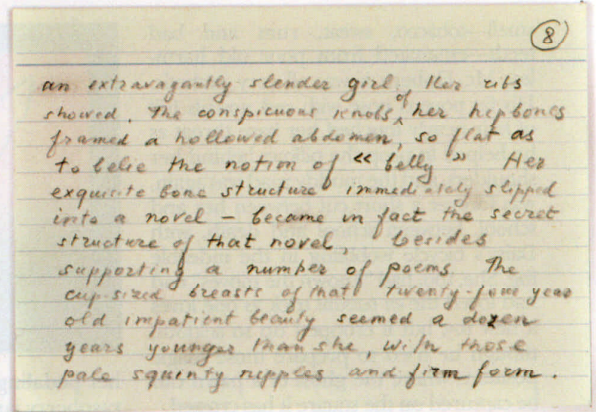 8
an extravagantly slender girl. Her ribs
showed. The conspicuous knobs of her hipbones
framed a hollowed abdomen, so flat as
to belie the notion of « belly » Her
exquisite bone structure immediately slipped
into a novel – became in fact the secret
structure of that novel, besides
supporting a number of poems. The
cup-sized breasts of that twenty-four year
old impatient beauty seemed a dozen
years younger than she, with those
pale squinty nipples and firm form.